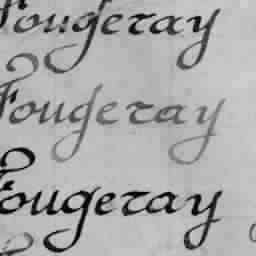 Fougeray
Fougeray
Fougeray